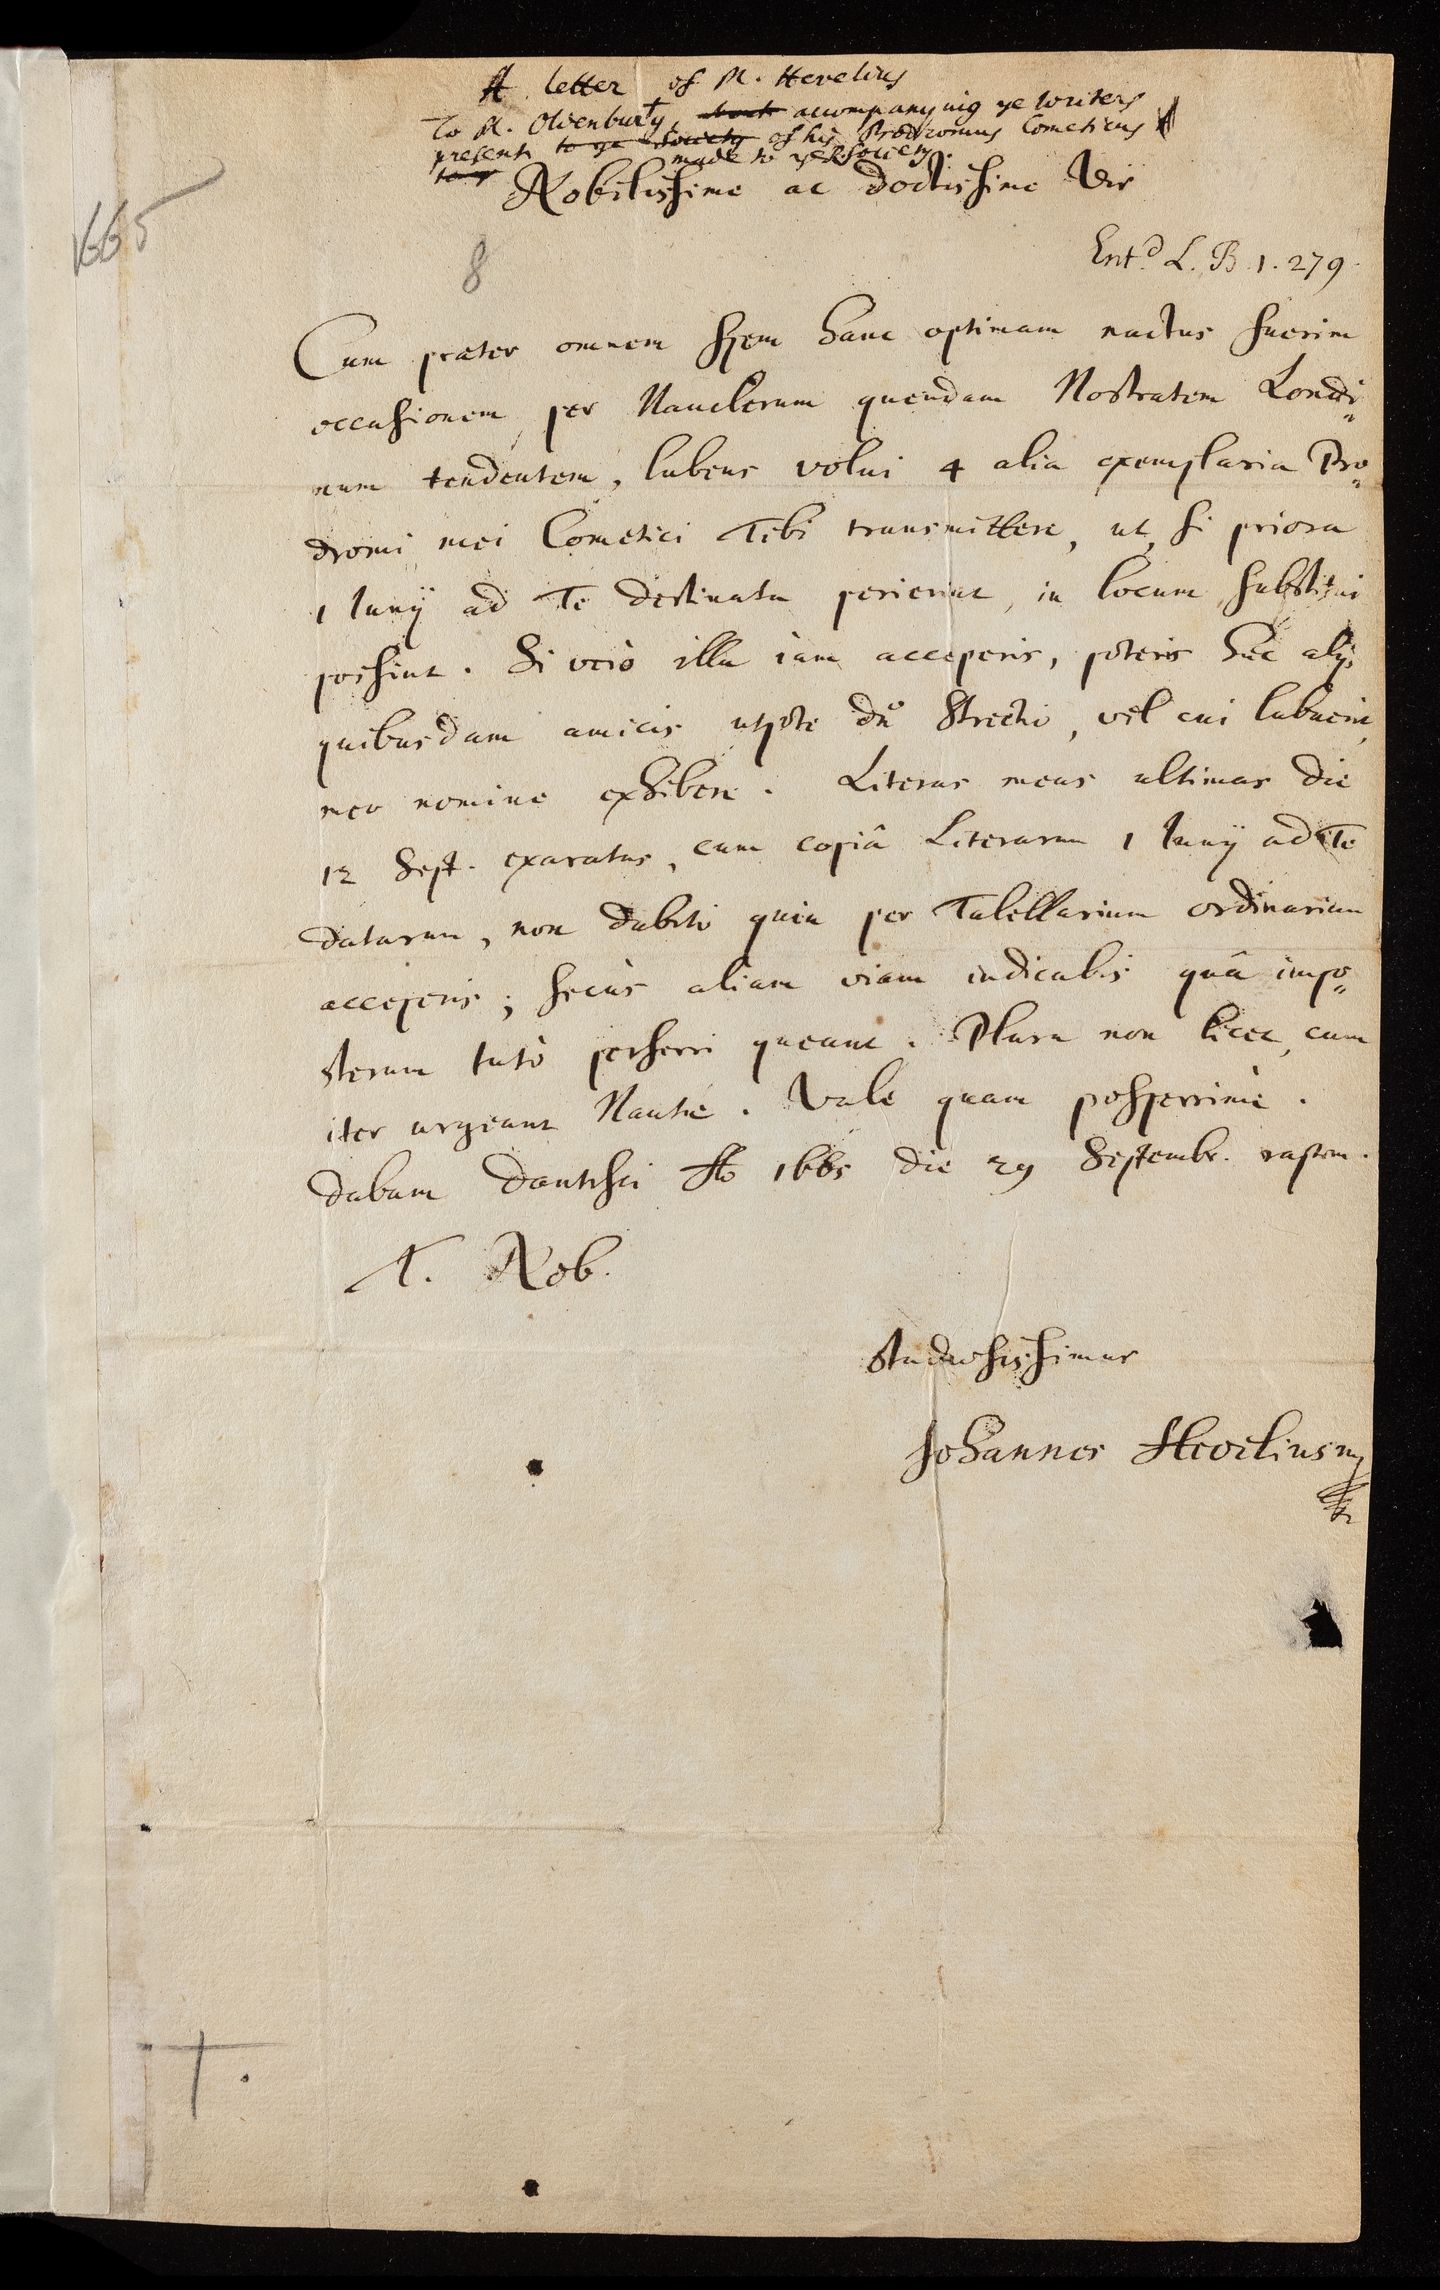 A letter of M. Hevelius
To M. Oldenburg, accompanying ye writers
present to ye Society of his Prodromus Cometicus
made to ye R. Society.
Nobilissime ac Doctissime Vir
1665
8
Ent.d L. B. 1. 279.
Cum præter omnem spem hanc optimam nactus fuerim
occasionem, per Nauclerum quendam Nostratem Londi„
num tendentem, lubens volui 4 alia exemplaria Pro„
dromi mei Cometici Tibi transmittere, ut, si priora
1 Junÿ ad Te destinata perierint, in locum substitui
possint. Si verò illa iam acceperis, poteris hæc alÿs
quibusdam amicis utpote dno Strechi, vel cui lubuerit,
meo nomine exhibere. Literas meas ultimas die
12 Sept. exaratas, cum copiâ Literarum 1 Junÿ ad Te
datarum, non dubito quin per Tabellarium ordinarium
acceperis; secùs aliam viam indicabis quâ impo„
sterum tutò perferri queant. Plura non licet, cum
iter urgeant Nautæ. Vale quam prosperrimè.
Dabam Dantisci Ao 1665 die 29 Septembr. raptim.
T. Nob.
Studiosissimus
Johannes Hevelius mp
T.